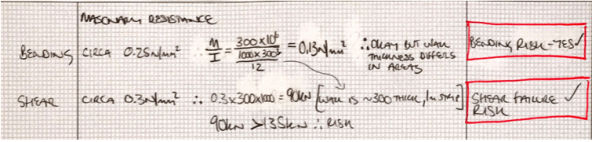 MASONARY RESISTANCE
BENDING CIRCA 0.25N/mm² M/I = 300x10⁶ / 1000x300³/12 = 0.13N/mm² ∴ OKAY BUT WALL THICKNESS DIFFERS IN AREAS
BENDING RISK - YES ✓
SHEAR CIRCA 0.3N/mm² ∴ 0.3x300x1000 = 90kN [WALL IS ~300 THICK, 1m STRIP]
90kN > 135kN ∴ RISK
SHEAR FAILURE RISK ✓